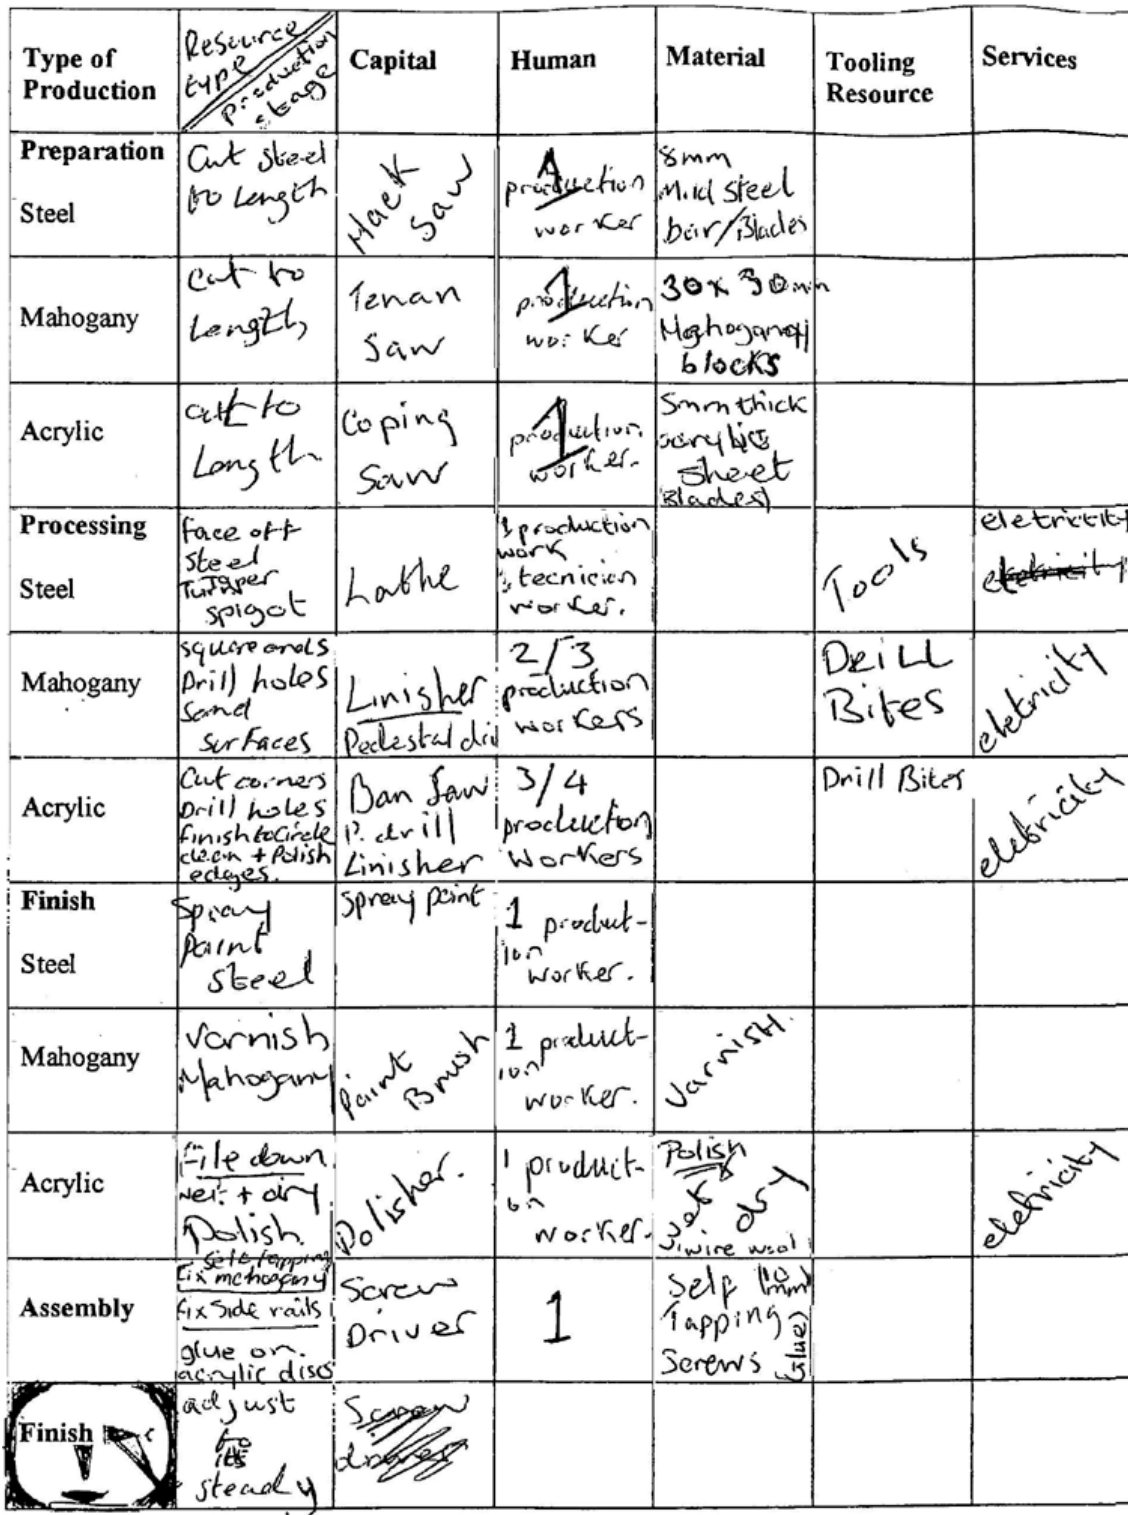 Type of
Production
Resource
type
production
stage
Capital
Human
Material
Tooling
Resource
Services
Preparation
Steel
Cut steel
to Length
Hack
Saw
1
production
worker
8mm
Mild Steel
bar/Blades
Mahogany
cut to
Length
Tenan
Saw
1
production
worker
30x30mm
Mahogany
blocks
Acrylic
cut to
Length
Coping
Saw
1
production
worker.
5mm thick
acrylic
sheet
Blades)
Processing
Steel
face off
steel
Taper
spigot
Lathe
1 production
work
tecnician
worker.
Tools
eletricity
eletricity
Mahogany
square ends
Drill holes
Sand
surfaces
Linisher
Pedestal dri
2/3
production
workers
DRILL
Bites
eletricity
Acrylic
Cut corners
Drill holes
finish to Circle
clean + Polish
edges.
Ban Saw
P. drill
Linisher
3/4
production
workers
Drill Bites
eletricity
Finish
Steel
Spray
paint
steel
spray paint
1 product-
ion
worker.
Mahogany
Varnish
Mahogany
Paint
Brush
1 product-
ion
worker.
Varnish.
Acrylic
File down
wet + dry
Polish.
Polisher.
1 product-
ion
worker.
Polish
wet
dry
wire wool
eletricity
Assembly
Self tapping
fix mahogany
fix side rails
glue on.
acrylic discs
Screw
Driver
1
Self (10
mm)
Tapping
Screws
(glue)
Finish
adjust
to
its
steady
Screw
driver